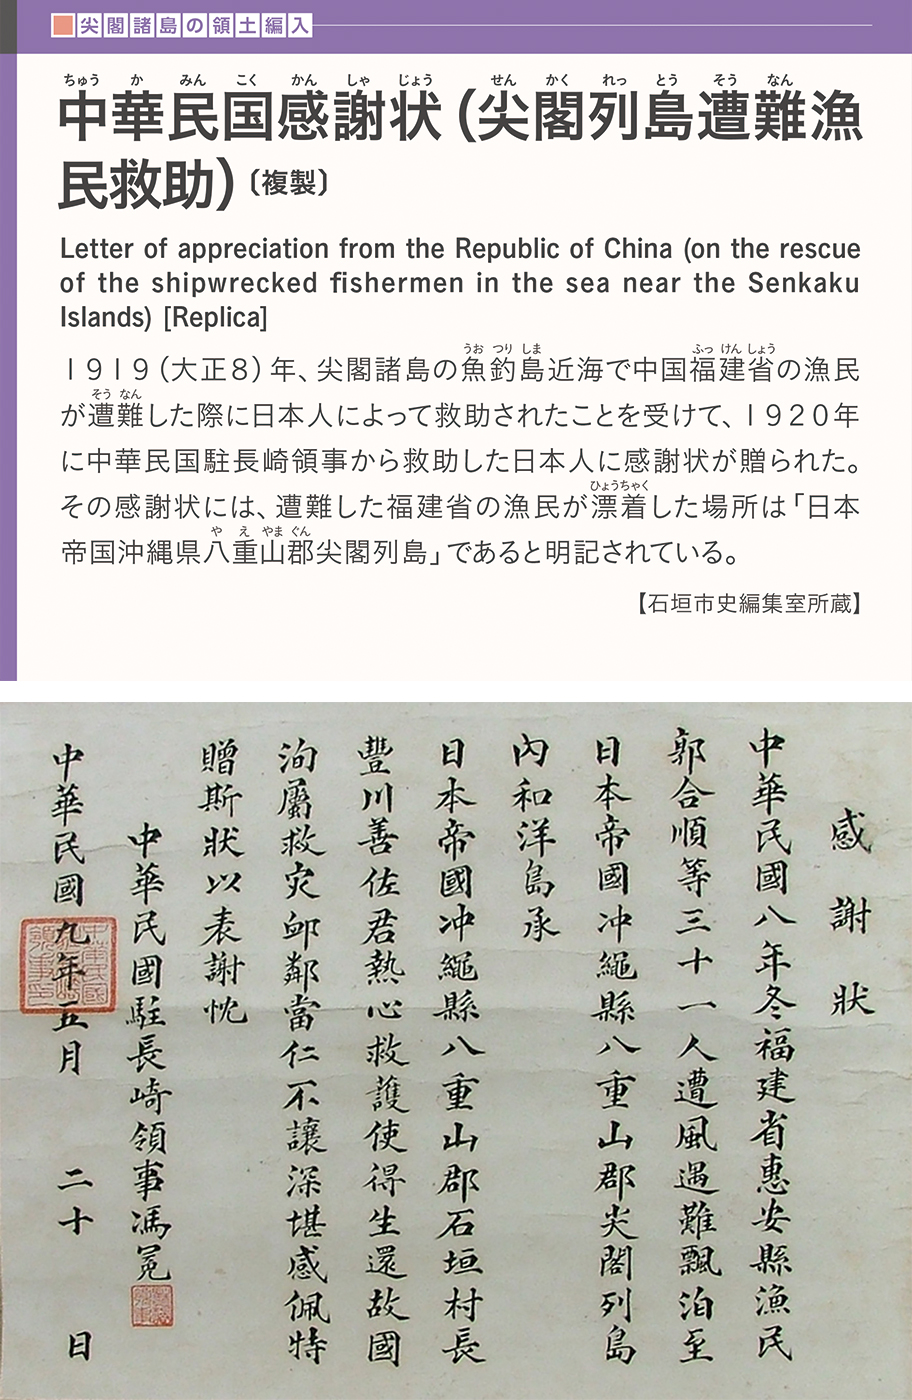 尖閣諸島の領土編入
中華民国感謝状(尖閣列島遭難漁
民救助)〔複製〕
Letter of appreciation from the Republic of China (on the rescue
of the shipwrecked fishermen in the sea near the Senkaku
Islands) [Replica]
1919(大正8)年、尖閣諸島の魚釣島近海で中国福建省の漁民
が遭難した際に日本人によって救助されたことを受けて、1920年
に中華民国駐長崎領事から救助した日本人に感謝状が贈られた。
その感謝状には、遭難した福建省の漁民が漂着した場所は「日本
帝国沖縄県八重山郡尖閣列島」であると明記されている。
【石垣市史編集室所蔵】
感謝状
中華民國八年冬福建省惠安縣漁民
郭合順等三十一人遭風遇難飄泊至
日本帝國冲繩縣八重山郡尖閣列島
內和洋島承
日本帝國冲繩縣八重山郡石垣村長
豐川善佐君熱心救護使得生還故國
洵屬救灾卹鄰當仁不讓深堪感佩特
贈斯狀以表謝忱
中華民國駐長崎領事馮冕
中華民國九年五月二十日